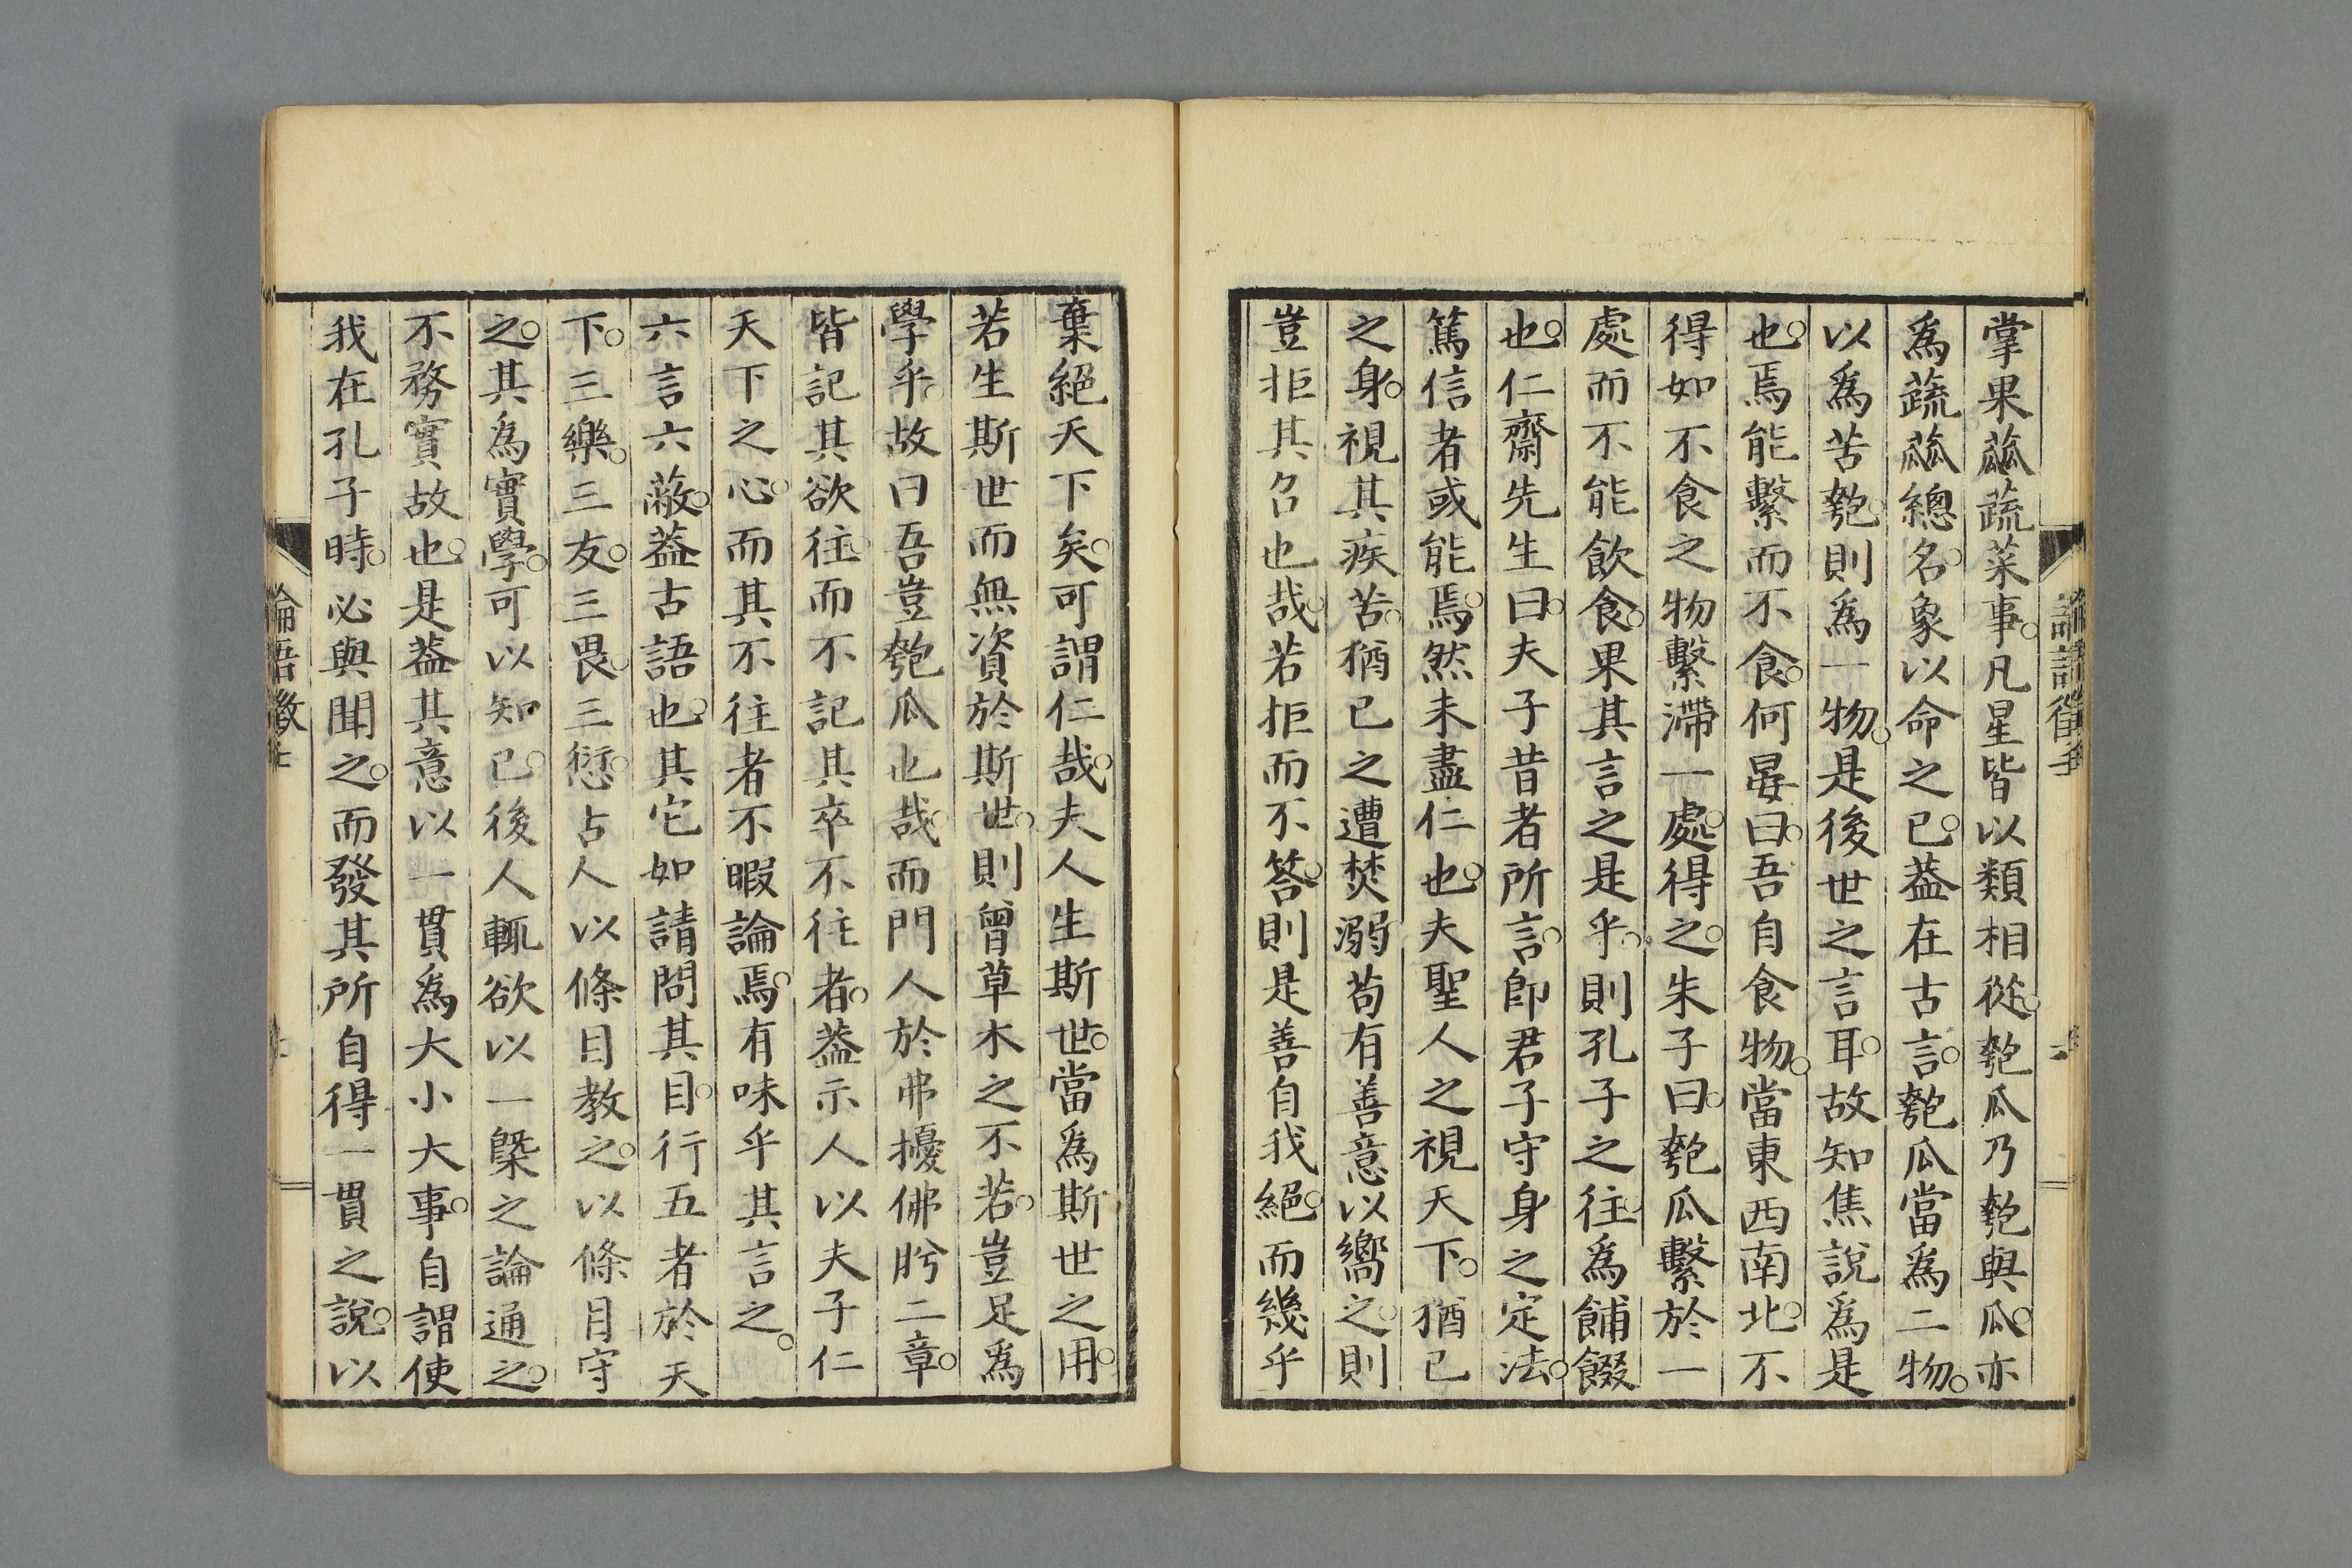 掌果蓏蔬菜事凡星皆以類相從匏瓜乃匏與瓜亦
爲蔬蓏總名象以命之已葢在古言匏瓜當爲二物
以爲苦匏則爲一物是後世之言耳故知焦說爲是
也焉能繫而不食何晏曰吾自食物當東西南北不
得如不食之物繫滯一處得之朱子曰匏瓜繫於一
處而不能飲食果其言之是乎則孔子之往爲餔餟
也仁齋先生曰夫子昔者所言卽君子守身之定法
篤信者或能焉然未盡仁也夫聖人之視天下猶已
之身視其疾苦猶已之遭焚溺苟有善意以嚮之則
豈拒其召也哉若拒而不答則是善自我絕而幾乎
棄絕天下矣可謂仁哉夫人生斯世當爲斯世之用
若生斯世而無資於斯世則曾草木之不若豈足爲
學乎故曰吾豈匏瓜也哉而門人於弗擾佛肸二章
皆記其欲往而不記其卒不往者葢示人以夫子仁
天下之心而其不往者不暇論焉有味乎其言之
六言六蔽葢古語也其它如請問其目行五者於天
下三樂三友三畏三愆占人以條目教之以條目守
之其爲實學可以知已後人輒欲以一槩之論通之
不務實故也是葢其意以一貫爲大小大事自謂使
我在孔子時必與聞之而發其所自得一貫之說以